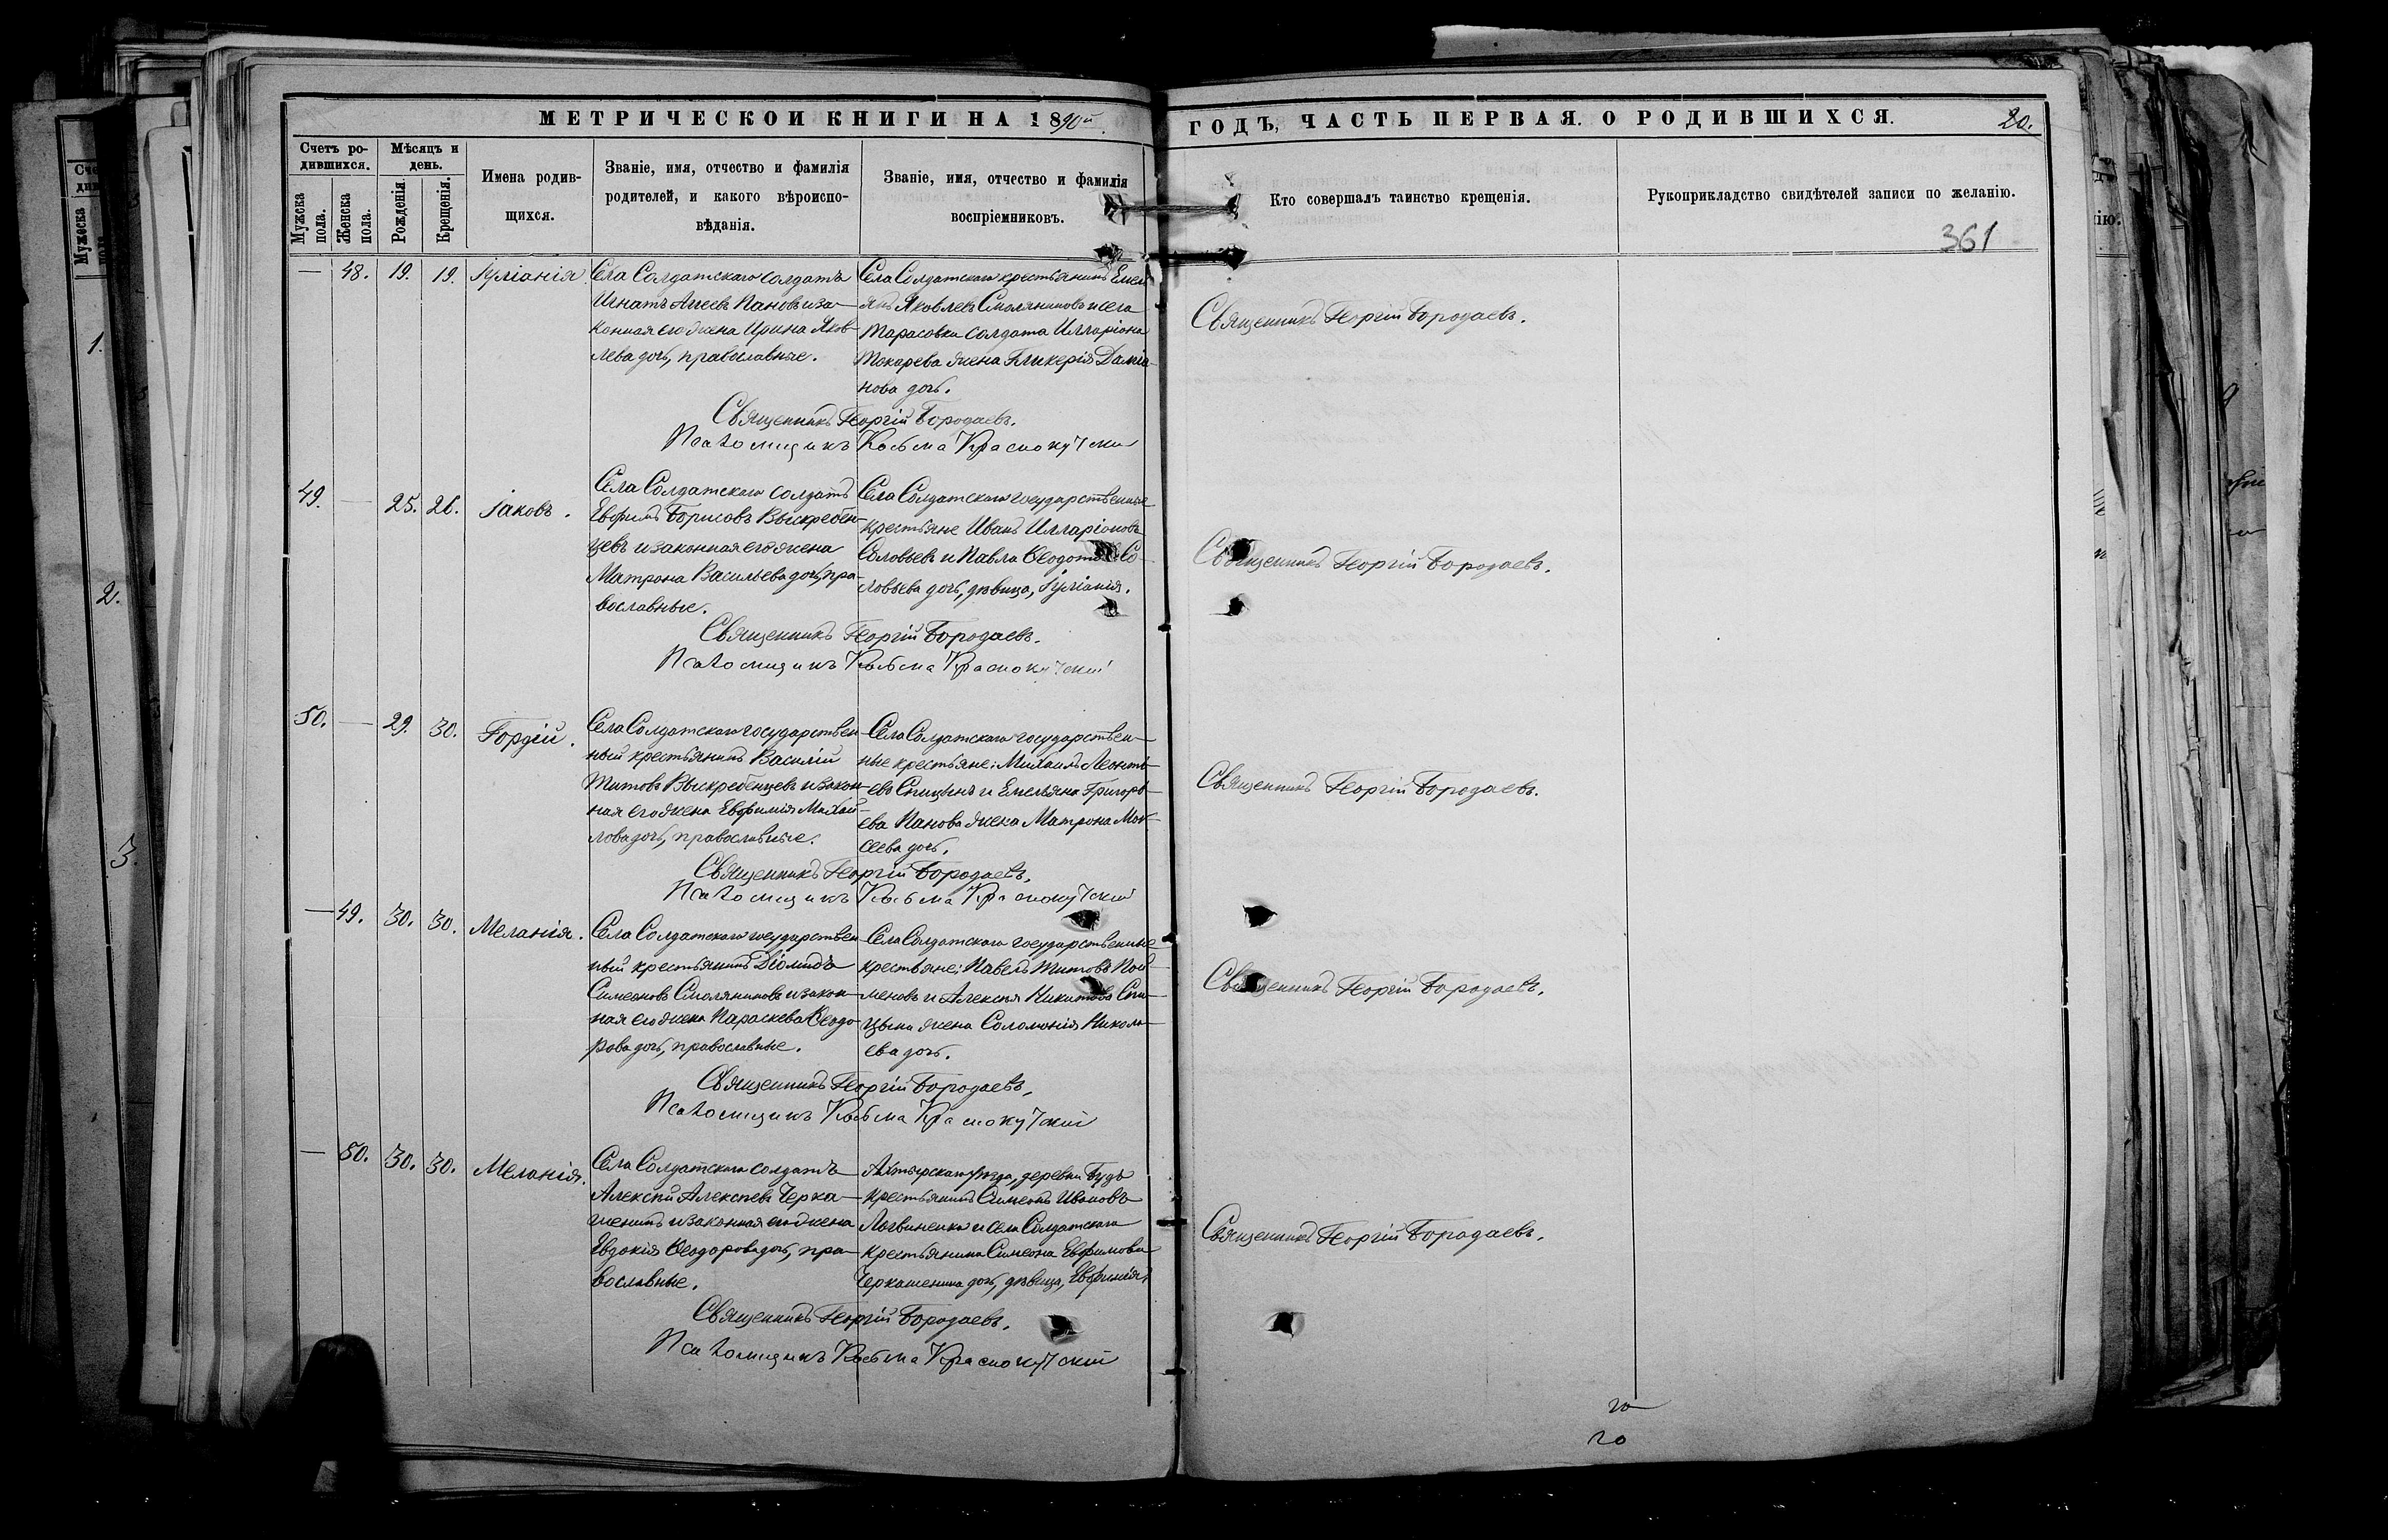 МЕТРИЧЕСКОЙ КНИГИ НА 1890й
ГОДЪ, ЧАСТЬ ПЕРВАЯ. О РОДИВШИХСЯ.
20.
361
Счетъ ро-
дившихся.
Мужеска
пола.
Женска
пола.
Мѣсяцъ и
день.
Рожденія.
Крещенія.
Имена родив-
шихся.
Званіе, имя, отчество и фамилія
родителей, и какого вѣроиспо-
вѣданія.
Званіе, имя, отчество и фамилія
воспріемниковъ.
Кто совершалъ таинство крещенія.
Рукоприкладство свидѣтелей записи по желанію.
— 48. 19. 19. Іуліанія.
Села Солдатскаго солдатъ
Игнатъ Агеевъ Пановъ и за-
конная его жена Ирина Яков-
лева дочь, православные.
Села Солдатскаго крестьянинъ Емел
янъ Яковлевъ Смоляниновъ и села
Тарасовки солдата Илларіона
Токарева жена Гликерія Даміа-
нова дочь.
Священникъ Георгій Бородаевъ.
Псаломщикъ Козьма Краснокутскій
Священникъ Георгій Бородаевъ.
49. — 25. 26. Іаковъ.
Села Солдатскаго солдатъ
Евфимъ Борисовъ Выскребен-
цевъ и законная его жена
Матрона Васильева дочь, пра-
вославные.
Села Солдатскаго государственные
крестьяне Иванъ Илларіоновъ
Соловьевъ и Павла Ѳеодотова Со-
ловьева дочь, дѣвица, Іуліанія.
Священникъ Георгій Бородаевъ.
Псаломщикъ Козьма Краснокутскій
Священникъ Георгій Бородаевъ.
50. — 29. 30. Гордій.
Села Солдатскаго государствен-
ный крестьянинъ Василій
Титовъ Выскребенцевъ и закон-
ная его жена Евфимія Михай-
лова дочь, православные.
Села Солдатскаго государствен-
ные крестьяне: Михаилъ Леонть-
евъ Спицынъ и Емельяна Григорь-
ева Панова жена Матрона Мои-
сеева дочь.
Священникъ Георгій Бородаевъ.
Псаломщикъ Козьма Краснокутскій
Священникъ Георгій Бородаевъ.
— 49. 30. 30. Меланія.
Села Солдатскаго государствен-
ный крестьянинъ Діомидъ
Симеоновъ Смоляниновъ и закон-
ная его жена Параскева Ѳеодо-
рова дочь, православные.
Села Солдатскаго государственные
крестьяне: Павелъ Титовъ
и Алексѣя Никитова Спи-
цына жена Соломонія Никола-
ева дочь.
Священникъ Георгій Бородаевъ.
Псаломщикъ Козьма Краснокутскій
Священникъ Георгій Бородаевъ.
— 50. 30. 30. Меланія.
Села Солдатскаго солдатъ
Алексѣй Алексѣевъ Черка-
шенинъ и законная его жена
Евдокія Ѳеодорова дочь, пра-
вославные.
Ахтырскаго уѣзда, деревни Будъ
крестьянинъ Симеонъ Ивановъ
Логвиненко и села Солдатскаго
крестьянина Симеона Евфимова
Черкашенина дочь, дѣвица, Евфимія.
Священникъ Георгій Бородаевъ.
Псаломщикъ Козьма Краснокутскій
Священникъ Георгій Бородаевъ.
20
20
1.
2.
3.